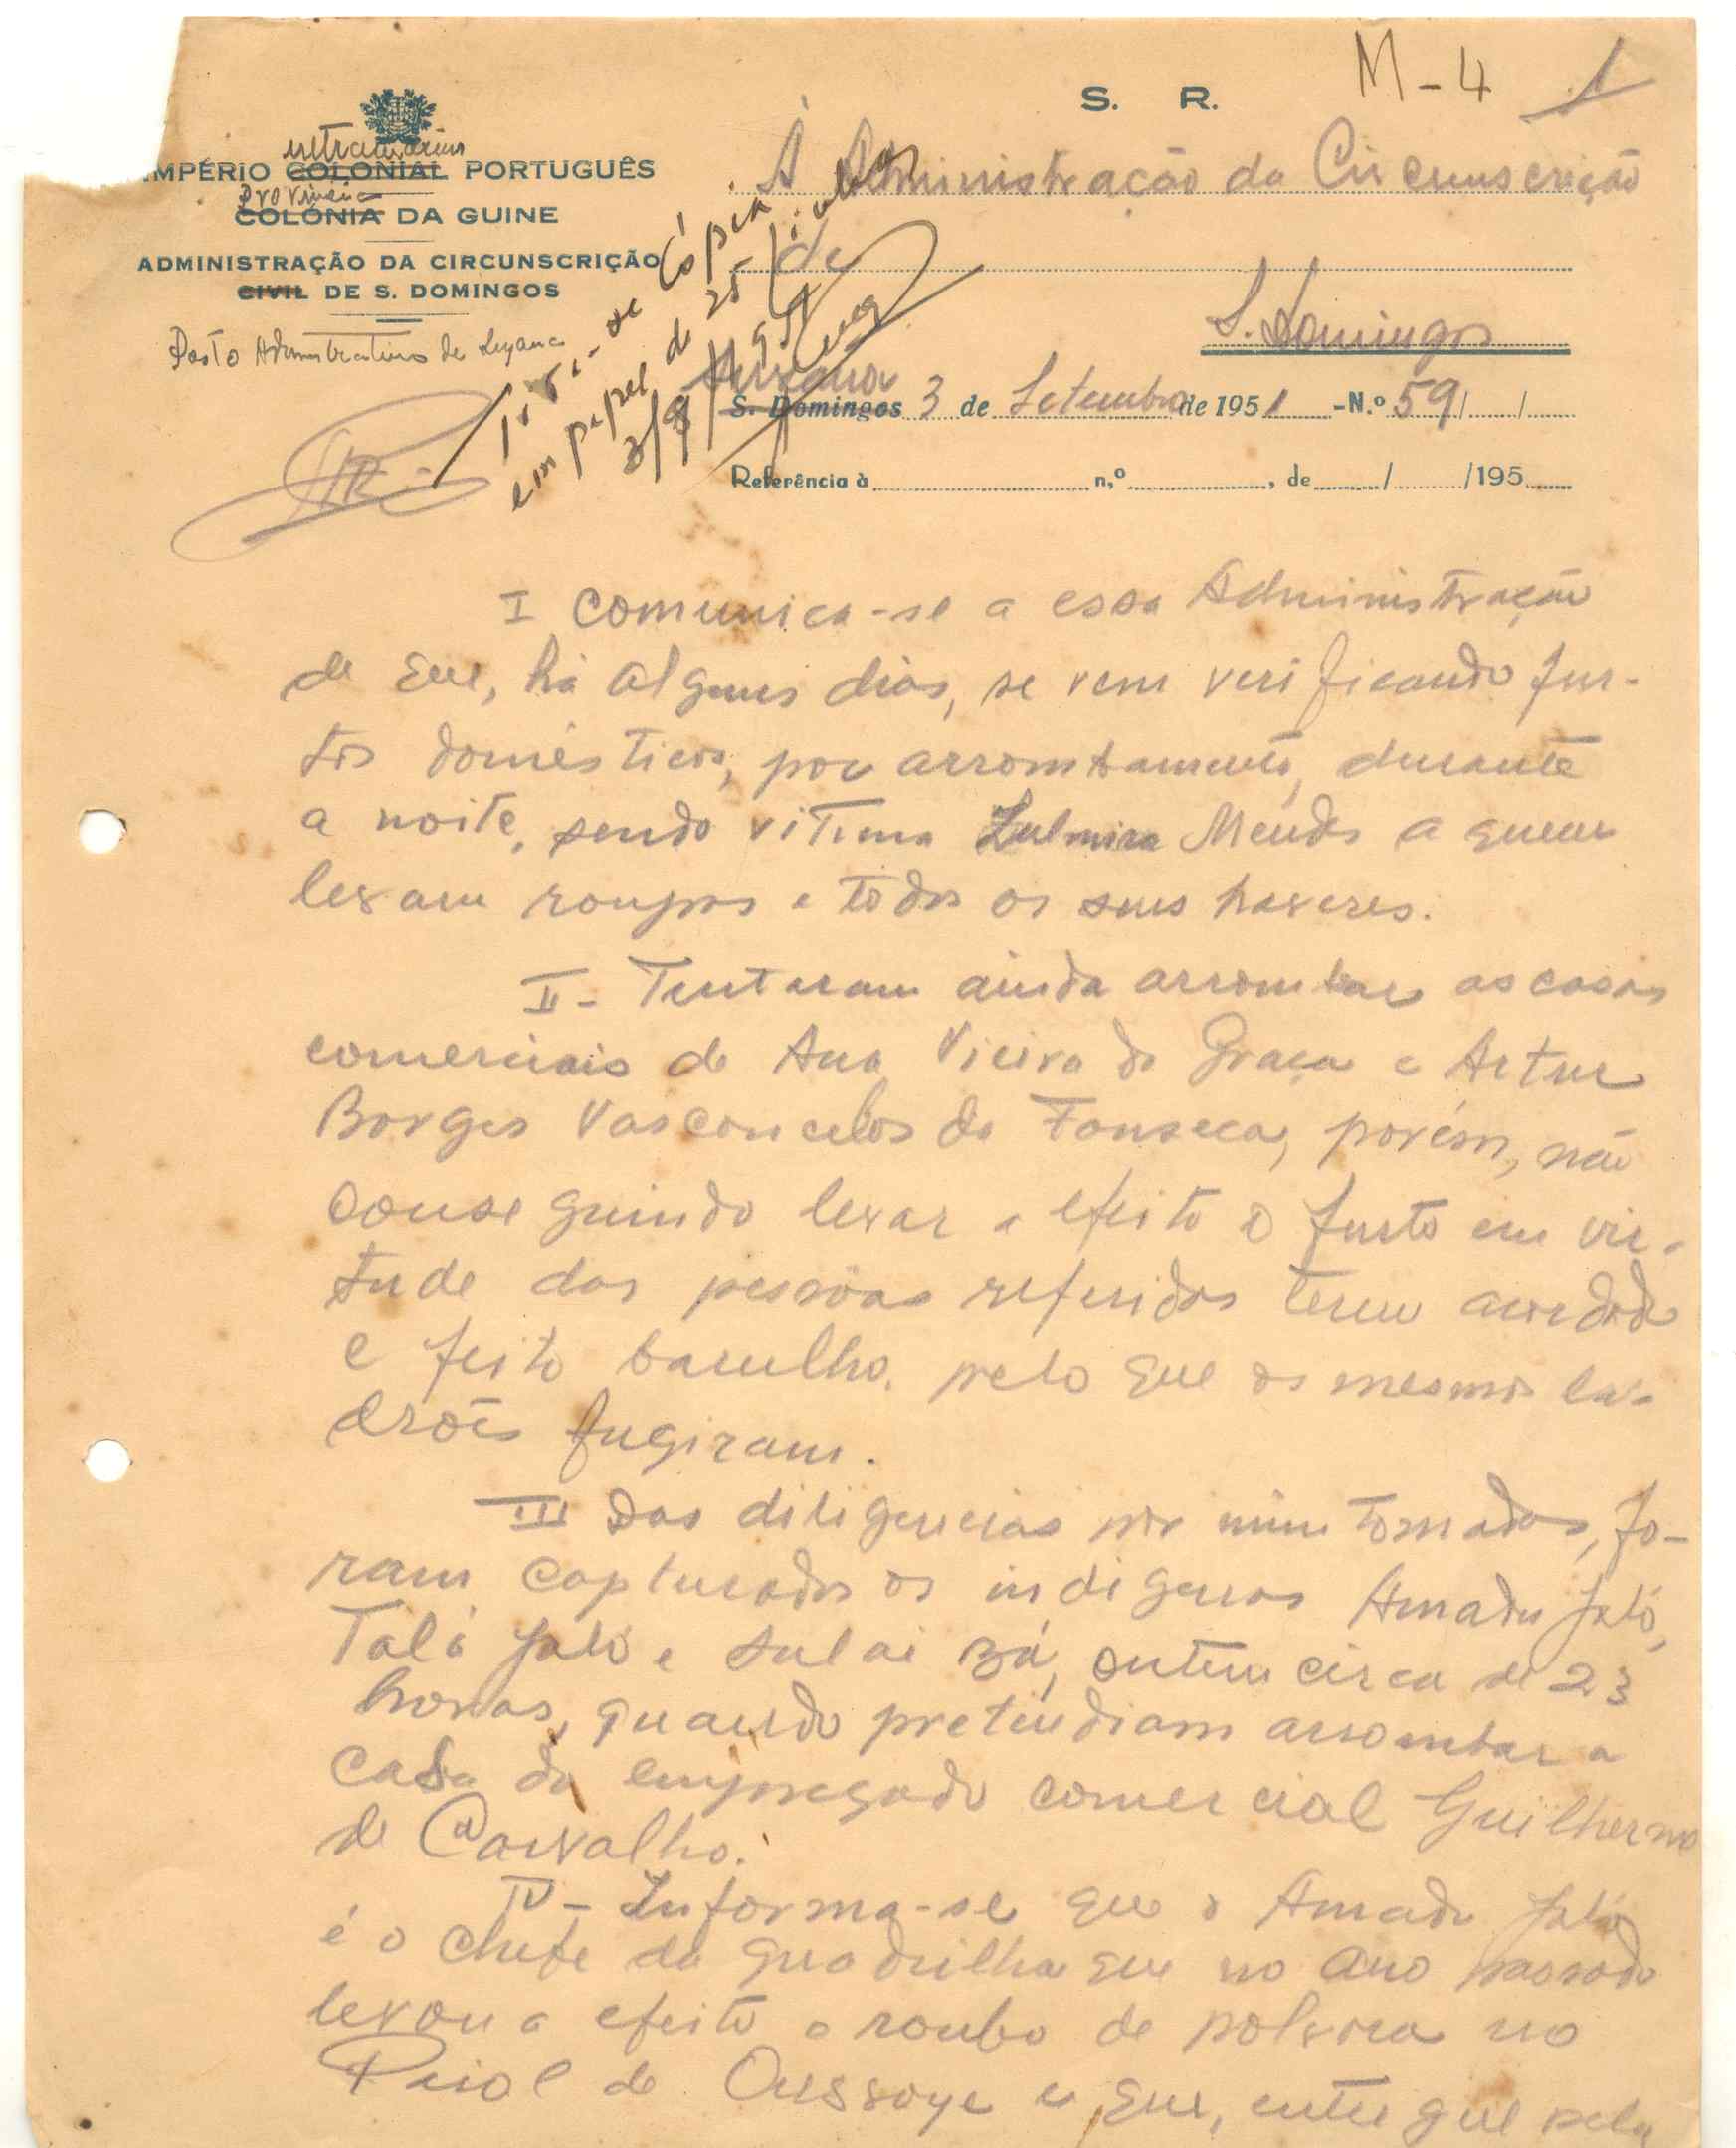 M-4 1
S. R.
ultramarino
IMPÉRIO COLONIAL PORTUGUÊS
Província
COLÓNIA DA GUINE
ADMINISTRAÇÃO DA CIRCUNSCRIÇÃO
CIVIL DE S. DOMINGOS
Posto Administrativo de Suzana
À Administração da Circunscrição
de
S. Domingos
em papel de 25 linhas
Suzana
S. Domingos 3 de Setembro de 1951 -N.º 59/ /
Referência à n,º , de / /195
I Comunica-se a essa Administração
de que, há alguns dias, se vem verificando fur-
tos domésticos, por arrombamento, durante
a noite, sendo vitima Zulmira Mendes a quem
levam roupas e todos os seus haveres.
II - Tentaram ainda arrombar as casas
comerciais de Ana Vieira da Graça e Artur
Borges Vasconcelos da Fonseca, porém, não
conseguindo levar a efeito o furto em vir-
tude das pessôas referidas terem acordado
e feito barulho, pelo que os mesmos la-
drões fugiram.
III Das diligencias por mim tomadas, fo-
ram capturados os indigenas Amadu Jaló,
Talá Jaló e Sulai Bá, ontem cerca de 23
horas, quando pretendiam arrombar a
casa do empregado comercial Guilherme
de Carvalho.
IV - Informa-se que o Amadu Jaló
é o chefe da quadrilha que no ano passado
levou a efeito o roubo de polvora no
Paiol de Oussoye e que, entregue pela